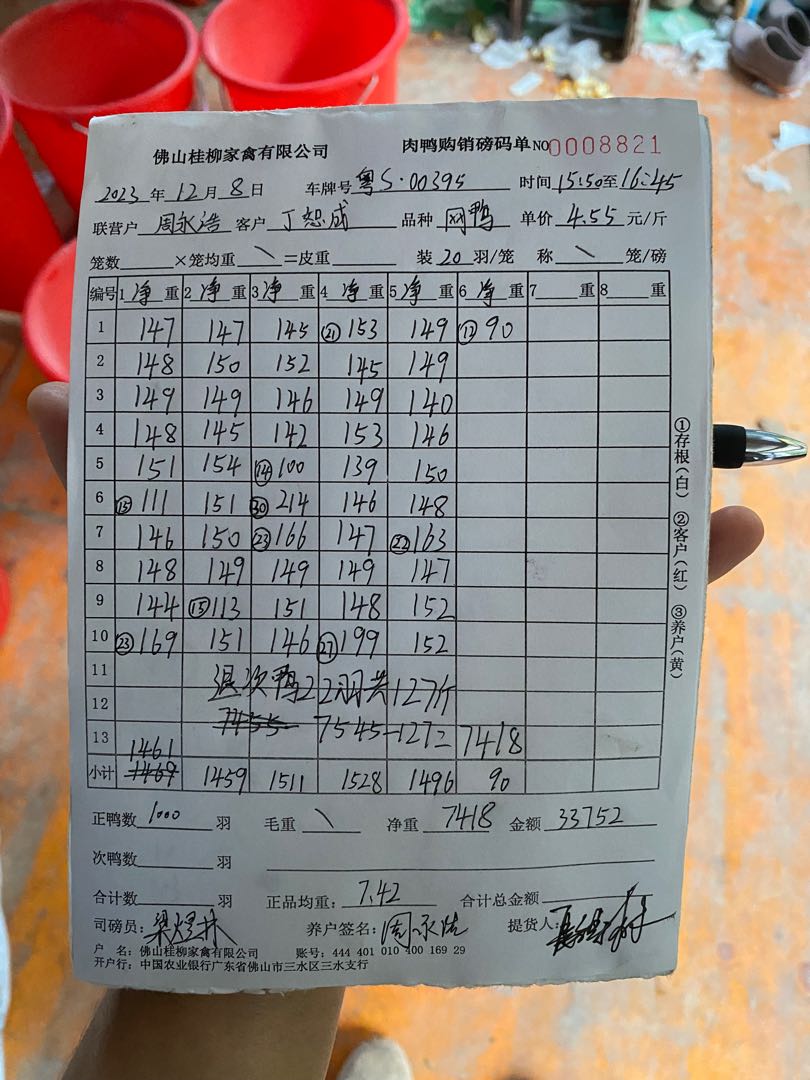 佛山桂柳家禽有限公司 肉鸭购销磅码单 NO 0008821
2023 年 12 月 8 日 车牌号 粤S·00395 时间 15:50 至 16:45
联营户 周永浩 客户 丁恕成 品种 网鸭 单价 4.55 元/斤
笼数 ×笼均重 \ =皮重 装 20 羽/笼 称 \ 笼/磅
编号 1 净 重 2 净 重 3 净 重 4 净 重 5 净 重 6 净 重 7 重 8 重
1 147 147 145 ㉑ 153 149 ⑫ 90
2 148 150 152 145 149
3 149 149 146 149 140
4 148 145 142 153 146
5 151 154 ⑭ 100 139 150
6 ⑮ 111 151 ㉚ 214 146 148
7 146 150 ㉓ 166 147 ㉒ 163
8 148 149 149 149 147
9 144 ⑮ 113 151 148 152
10 ㉓ 169 151 146 ㉗ 199 152
11 退次鸭22羽共127斤
12 7455 7545-127=7418
13 1461
小计 1469 1459 1511 1528 1496 90
正鸭数 1000 羽 毛重 \ 净重 7418 金额 33752
次鸭数 羽
合计数 羽 正品均重: 7.42 合计总金额
司磅员: 梁煜林 养户签名: 周永浩 提货人:
户 名: 佛山桂柳家禽有限公司 账号: 444 401 010 400 169 29
开户行: 中国农业银行广东省佛山市三水区三水支行
①存根(白) ②客户(红) ③养户(黄)